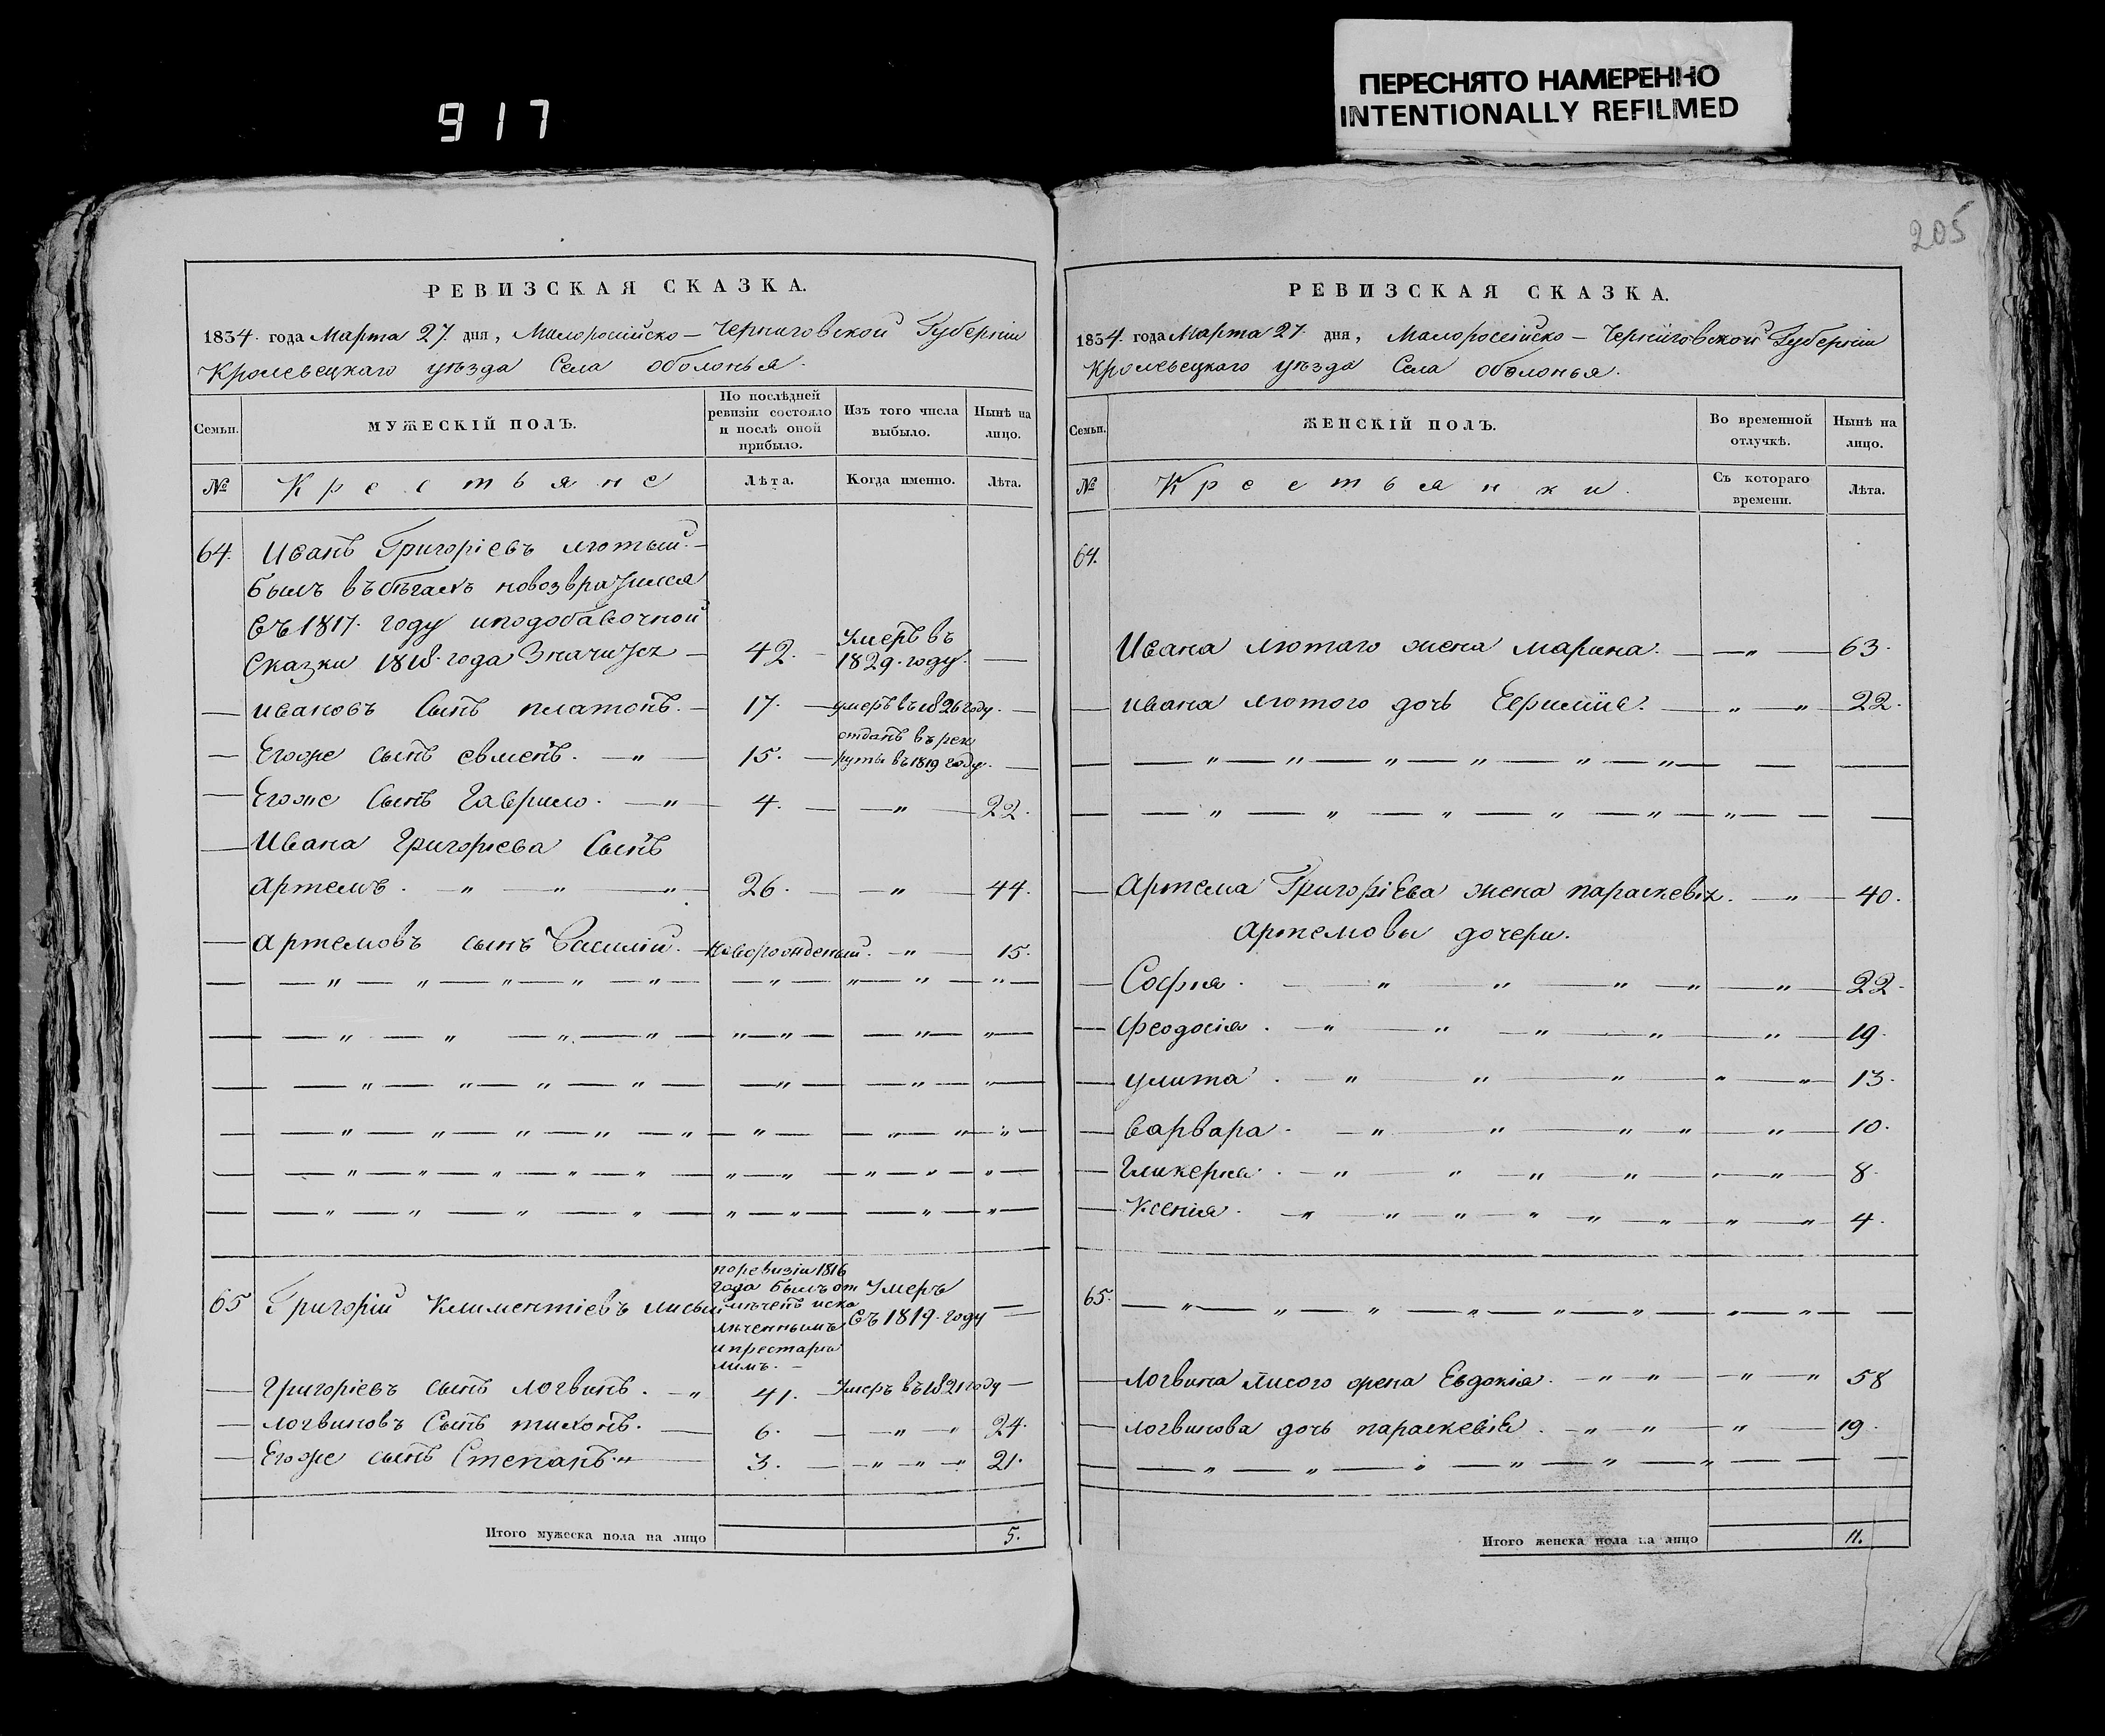 917
ПЕРЕСНЯТО НАМЕРЕННО
INTENTIONALLY REFILMED
РЕВИЗСКАЯ СКАЗКА.
1834. года Марта 27. дня, Малоросійско-Черниговской Губерніи
Кролевецкаго уѣзда Села оболонья.
Семьи.
МУЖЕСКІЙ ПОЛЪ.
По послѣдней ревизіи состояло и послѣ оной прибыло.
Изъ того числа выбыло.
Нынѣ на лицо.
№
Крестьяне
Лѣта.
Когда именно.
Лѣта.
64. Иванъ Григоріевъ лютый.
былъ въ бѣгахъ
въ 1817. году
Сказки 1818. года 42. Умеръ въ 1829. году.
ивановъ Сынъ платонъ. 17. умеръ въ 1826 году.
Егоже сынъ евменъ. 15. отданъ в рек
руты въ 1819 году.
Егоже Сынъ Гаврило. 4. 22.
Ивана Григорієва Сынъ
Артемъ. 26. 44.
артемовъ сынъ Василій. Новорожденый. 15.
65 Григорій Климентіевъ лисый
поревизіи 1816
года былъ от
мѣченъ иска
лѣченнымъ
и престарѣ
лымъ.
Умеръ
въ 1819. году
Григоріевъ сынъ логвинъ. 41. Умеръ въ 1821 году
логвиновъ Сынъ тихонъ. 6. 24.
Егоже сынъ Степанъ. 3. 21.
Итого мужеска пола на лицо 5.
205
РЕВИЗСКАЯ СКАЗКА.
1834. года Марта 27. дня, Малоросійско-Черниговской Губерніи
Кролевецкаго уѣзда Села оболонья.
Семьи.
ЖЕНСКІЙ ПОЛЪ.
Во временной отлучкѣ.
Нынѣ на лицо.
№
Крестьянки.
Съ котораго времени.
Лѣта.
64.
Ивана лютаго жена марина. 63.
ивана лютого дочь 22.
Артема Григорієва жена параскевія. 40.
Артемовы дочери.
Софія. 22.
Феодосія. 19.
улита. 13.
варвара. 10.
Гликерия. 8.
Ксенія. 4.
65.
логвина лисого жена Евдокія. 58
логвинова дочь параскевія. 19.
Итого женска пола на лицо 11.